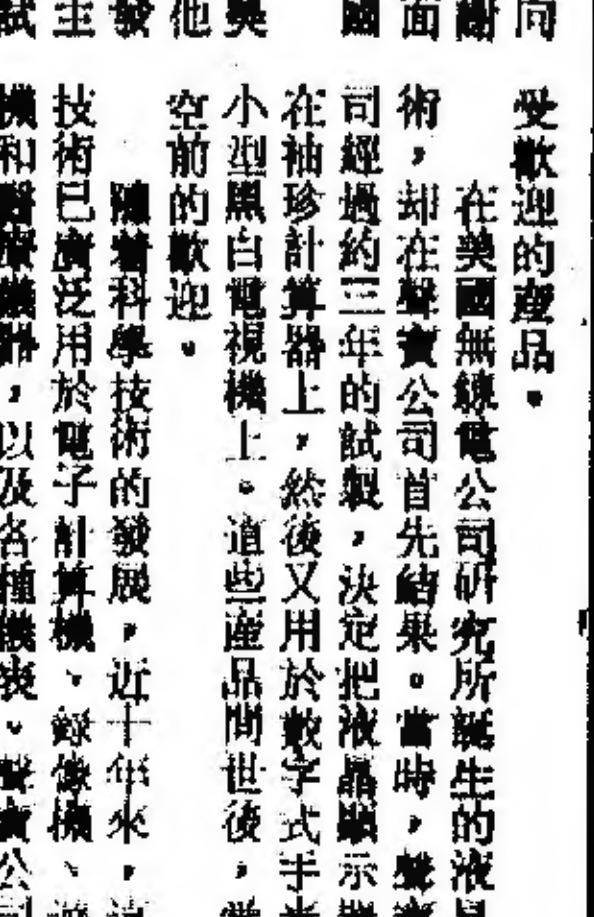 同
謝
面
國
奥
他
發
主
試
受歡迎的產品。
在美國無線電公司研究所誕生的液晶
術，却在聲寶公司首先結果。當時，聲寶
司經過約三年的試製，決定把液晶顯示
在袖珍計算器上，然後又用於數字式手
小型黑白電視機上。這些產品問世後，
空前的歡迎。
隨着科學技術的發展，近十年來，這
技術已廣泛用於電子計算機、錄像機、
機和醫療機器，以及各種儀表。聲寶公司